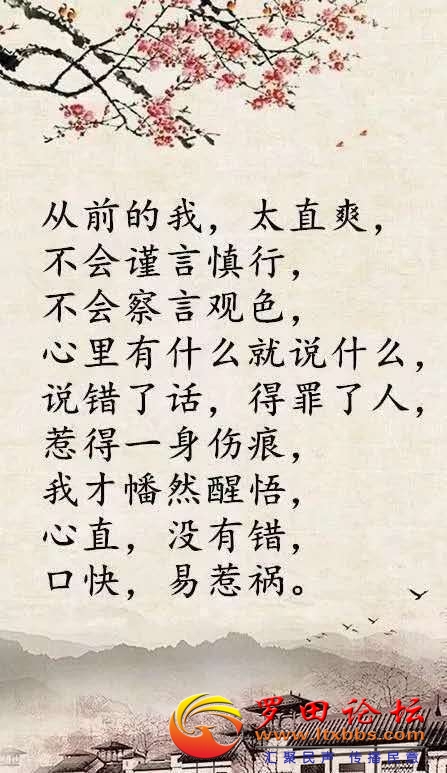 从前的我，太直爽，
不会谨言慎行，
不会察言观色，
心里有什么就说什么，
说错了话，得罪了人，
惹得一身伤痕，
我才幡然醒悟，
心直，没有错，
口快，易惹祸。
罗田论坛
www.ltxbbs.com
汇聚民声 传播民意